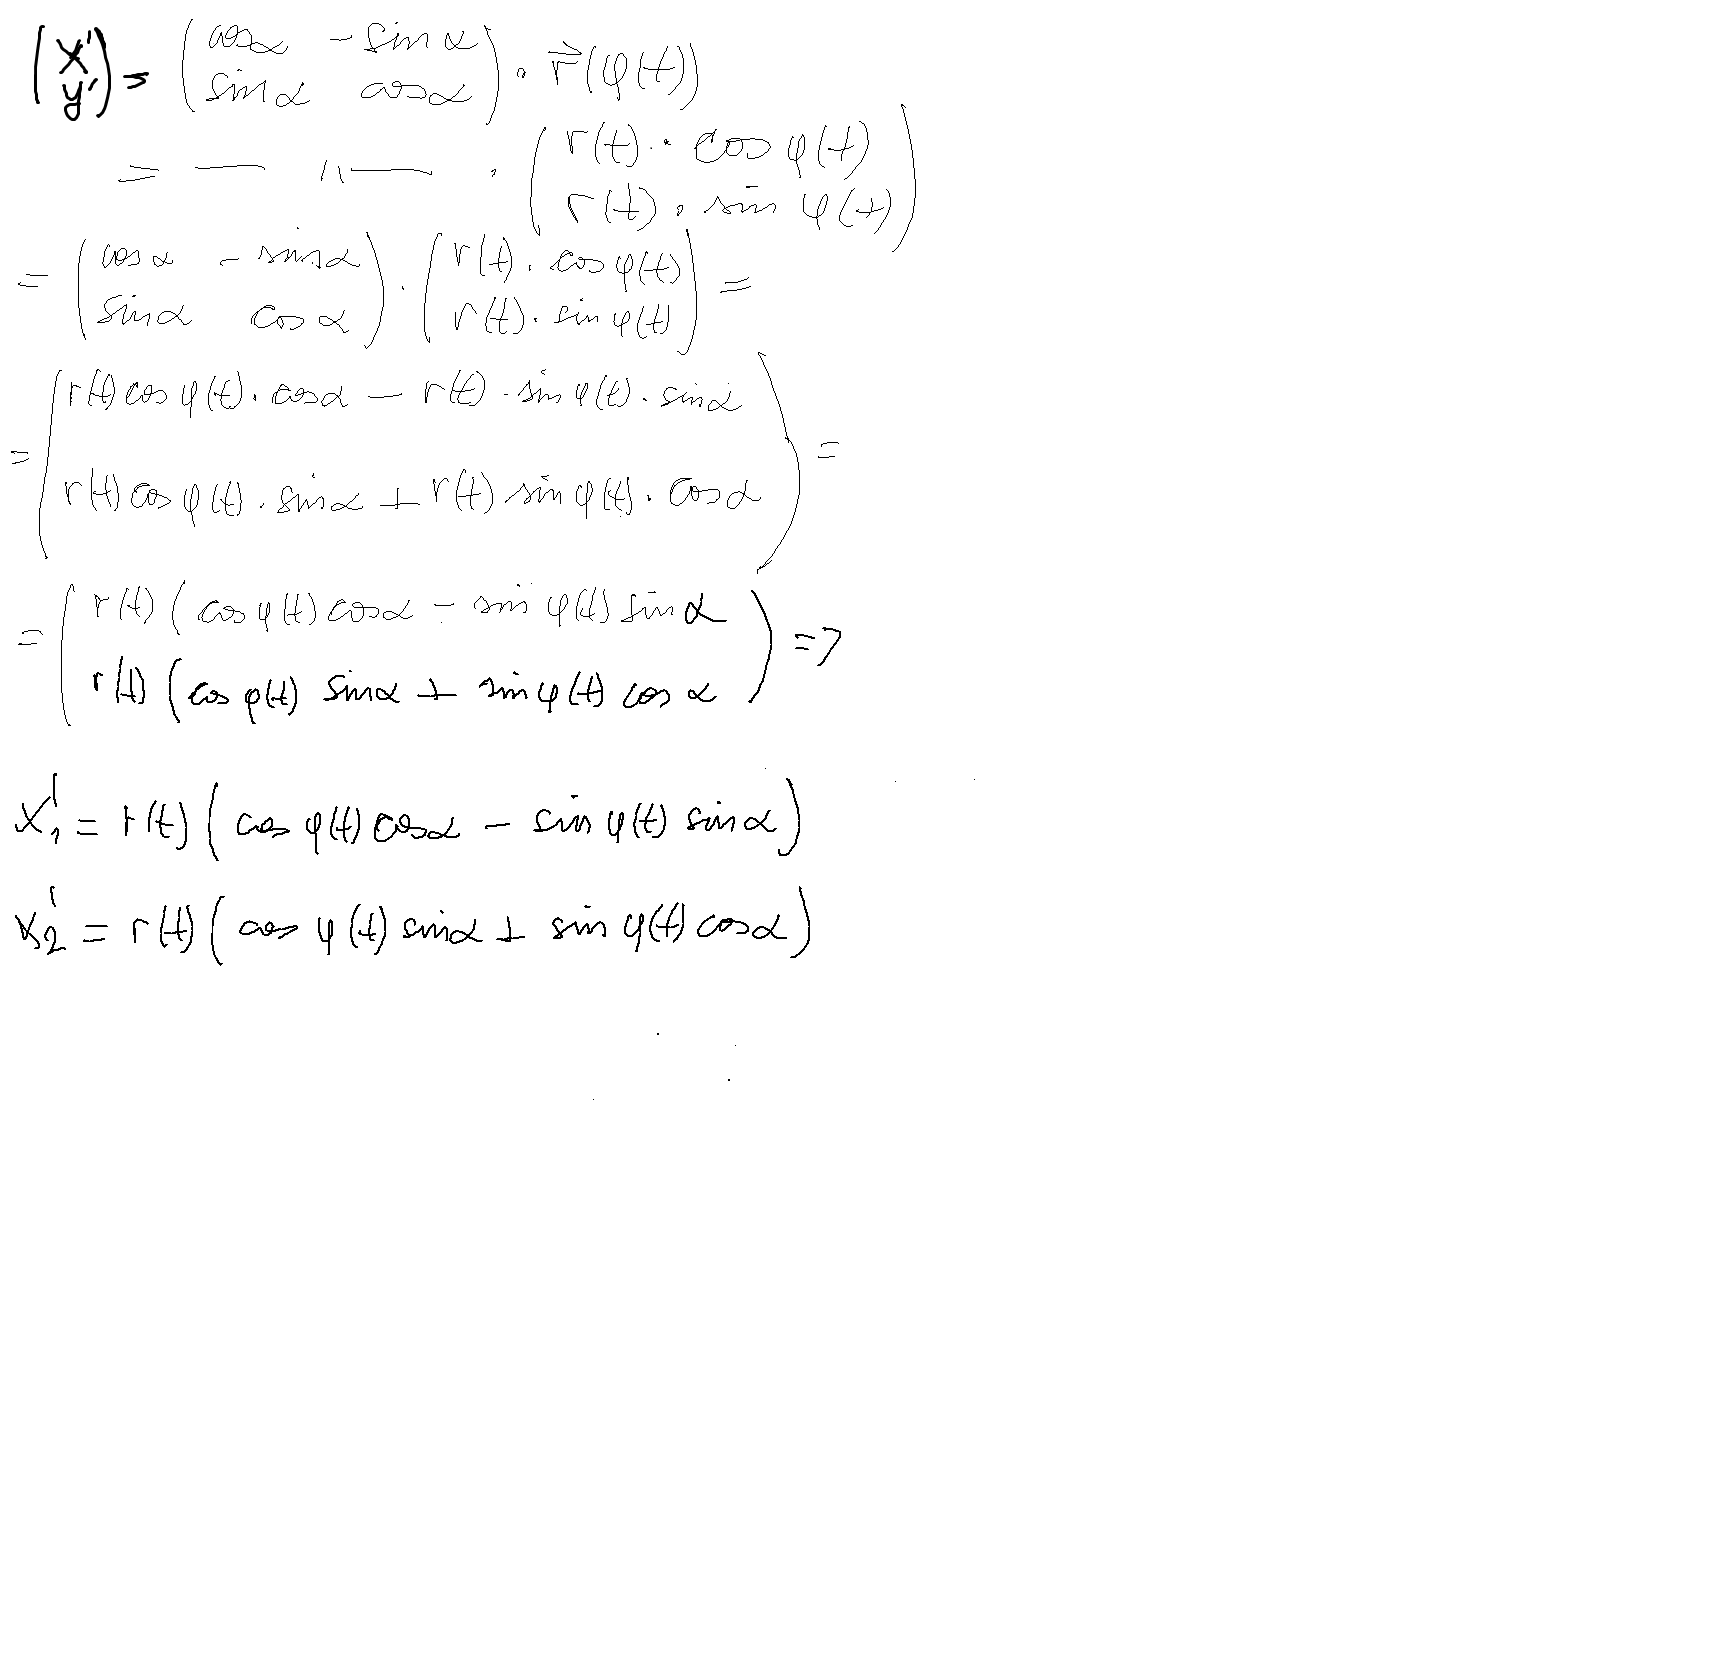 (x' y') = (cosα -sinα sinα cosα) · r⃗(φ(t))
= — 〃 — · (r(t) · cos φ(t) r(t) · sin φ(t))
= (cosα -sinα sinα cosα) · (r(t) · cosφ(t) r(t) · sinφ(t)) =
= (r(t) cosφ(t) · cosα - r(t) · sinφ(t) · sinα
r(t) cosφ(t) · sinα + r(t) sinφ(t) · cosα) =
= (r(t) (cosφ(t) cosα - sinφ(t) sinα
r(t) (cosφ(t) sinα + sinφ(t) cosα) =>
x₁' = r(t) (cosφ(t) cosα - sinφ(t) sinα)
x₂' = r(t) (cosφ(t) sinα + sinφ(t) cosα)